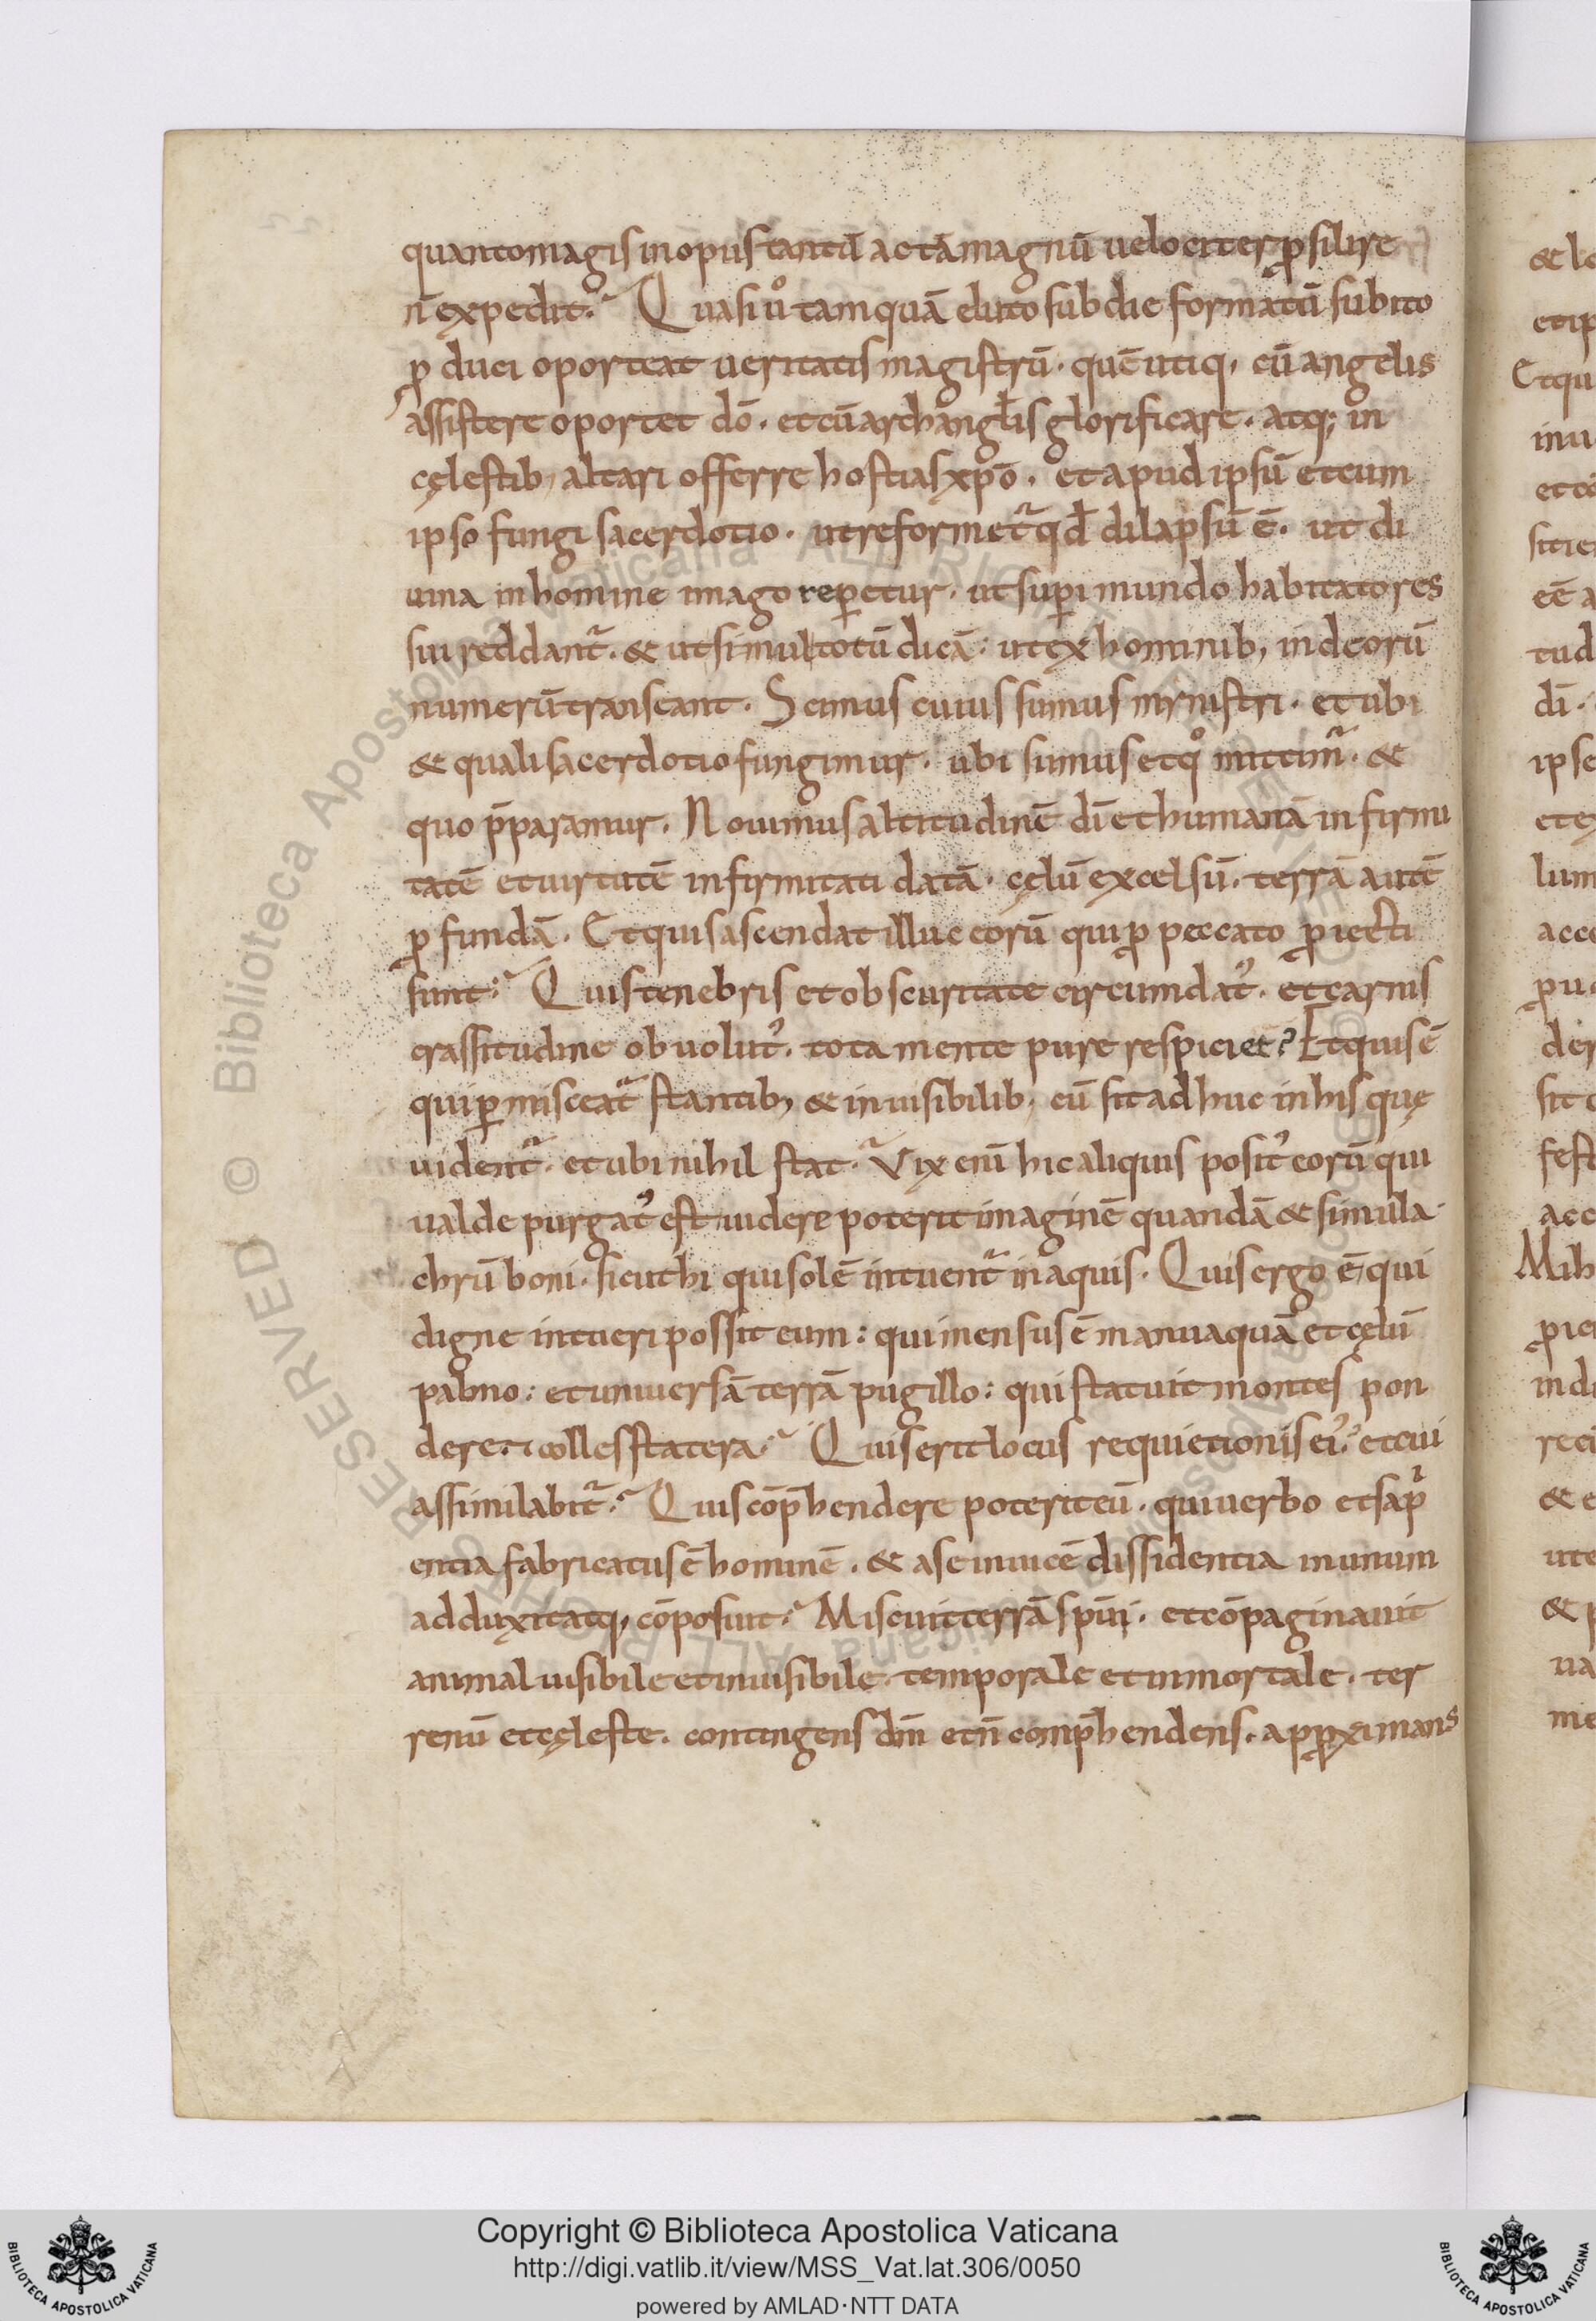 quanto magis in opus tantū ac tā magnū velociter ꝓsilire
n̄ expedit. Quasi uͦ tamquā e luto sub die formatū subito
ꝓduci oporteat ueritatis magistrū. quē utiq, cū angelis
assistere oportet dō. et cū archangłis glorificare. atq; in
cęlestib, altari offerre hostias xp̄o. et apud ipsū et cum
ipso fungi sacerdotio. ut reformet᷑ qđ dilapsū ē. ut di
uina in homine imago reꝑetur. ut suꝑi mundo habitatores
sui reddant᷑. & ut simul totū dicā. ut ex hominib, in deorū
numerū transeant. Scimus cuius sumus ministri. et ubi
& quali sacerdotio fungimur. ubi sumus et qͦ mittim᷑. &
quo p̄paramur. Nouimus altitudinē dī et humanā infirmi
tatē et uirtutē infirmitati datā. cęlū excelsū. terrā autē
ꝓfundā. Et quis ascendat illuc eorū qui ꝓ peccato ꝓiecti
sunt. Quis tenebris et obscuritate circumdatꝰ. et carnis
crassitudine obuolutꝰ. tota mente pure respiciet? Et quis ē
qui ꝑmisceat᷑ stantib, & inuisibilib, cū sit adhuc in his quę
uident᷑. et ubi nihil stat. Vix enī hic aliquis positꝰ eorū qui
ualde purgatꝰ est uidere poterit imaginē quandā & simula
chrū boni. sicut hi qui solē intuent᷑ in aquis. Quis ergo ē qui
digne intueri possit eum: qui mensus ē manu aquā et cęlū
palmo: et uniuersā terrā pugillo: qui statuit montes pon
dere. et colles statera. Quis erit locus requietionis eiꝰ. et cui
assimilabit᷑. Quis cōp̄hendere poterit eū. qui uerbo et sapi
entia fabricatus ē hominē. & a se inuicē dissidentia in unum
adduxit atq, cōposuit. Miscuit terrā sp̄ui. et cōpaginauit
animal uisibile et inuisibile. temporale et inmortale. ter
renū et cęleste. contingens dm̄ et n̄ comp̄hendens. apꝓximans
Copyright © Biblioteca Apostolica Vaticana
http://digi.vatlib.it/view/MSS_Vat.lat.306/0050
powered by AMLAD·NTT DATA